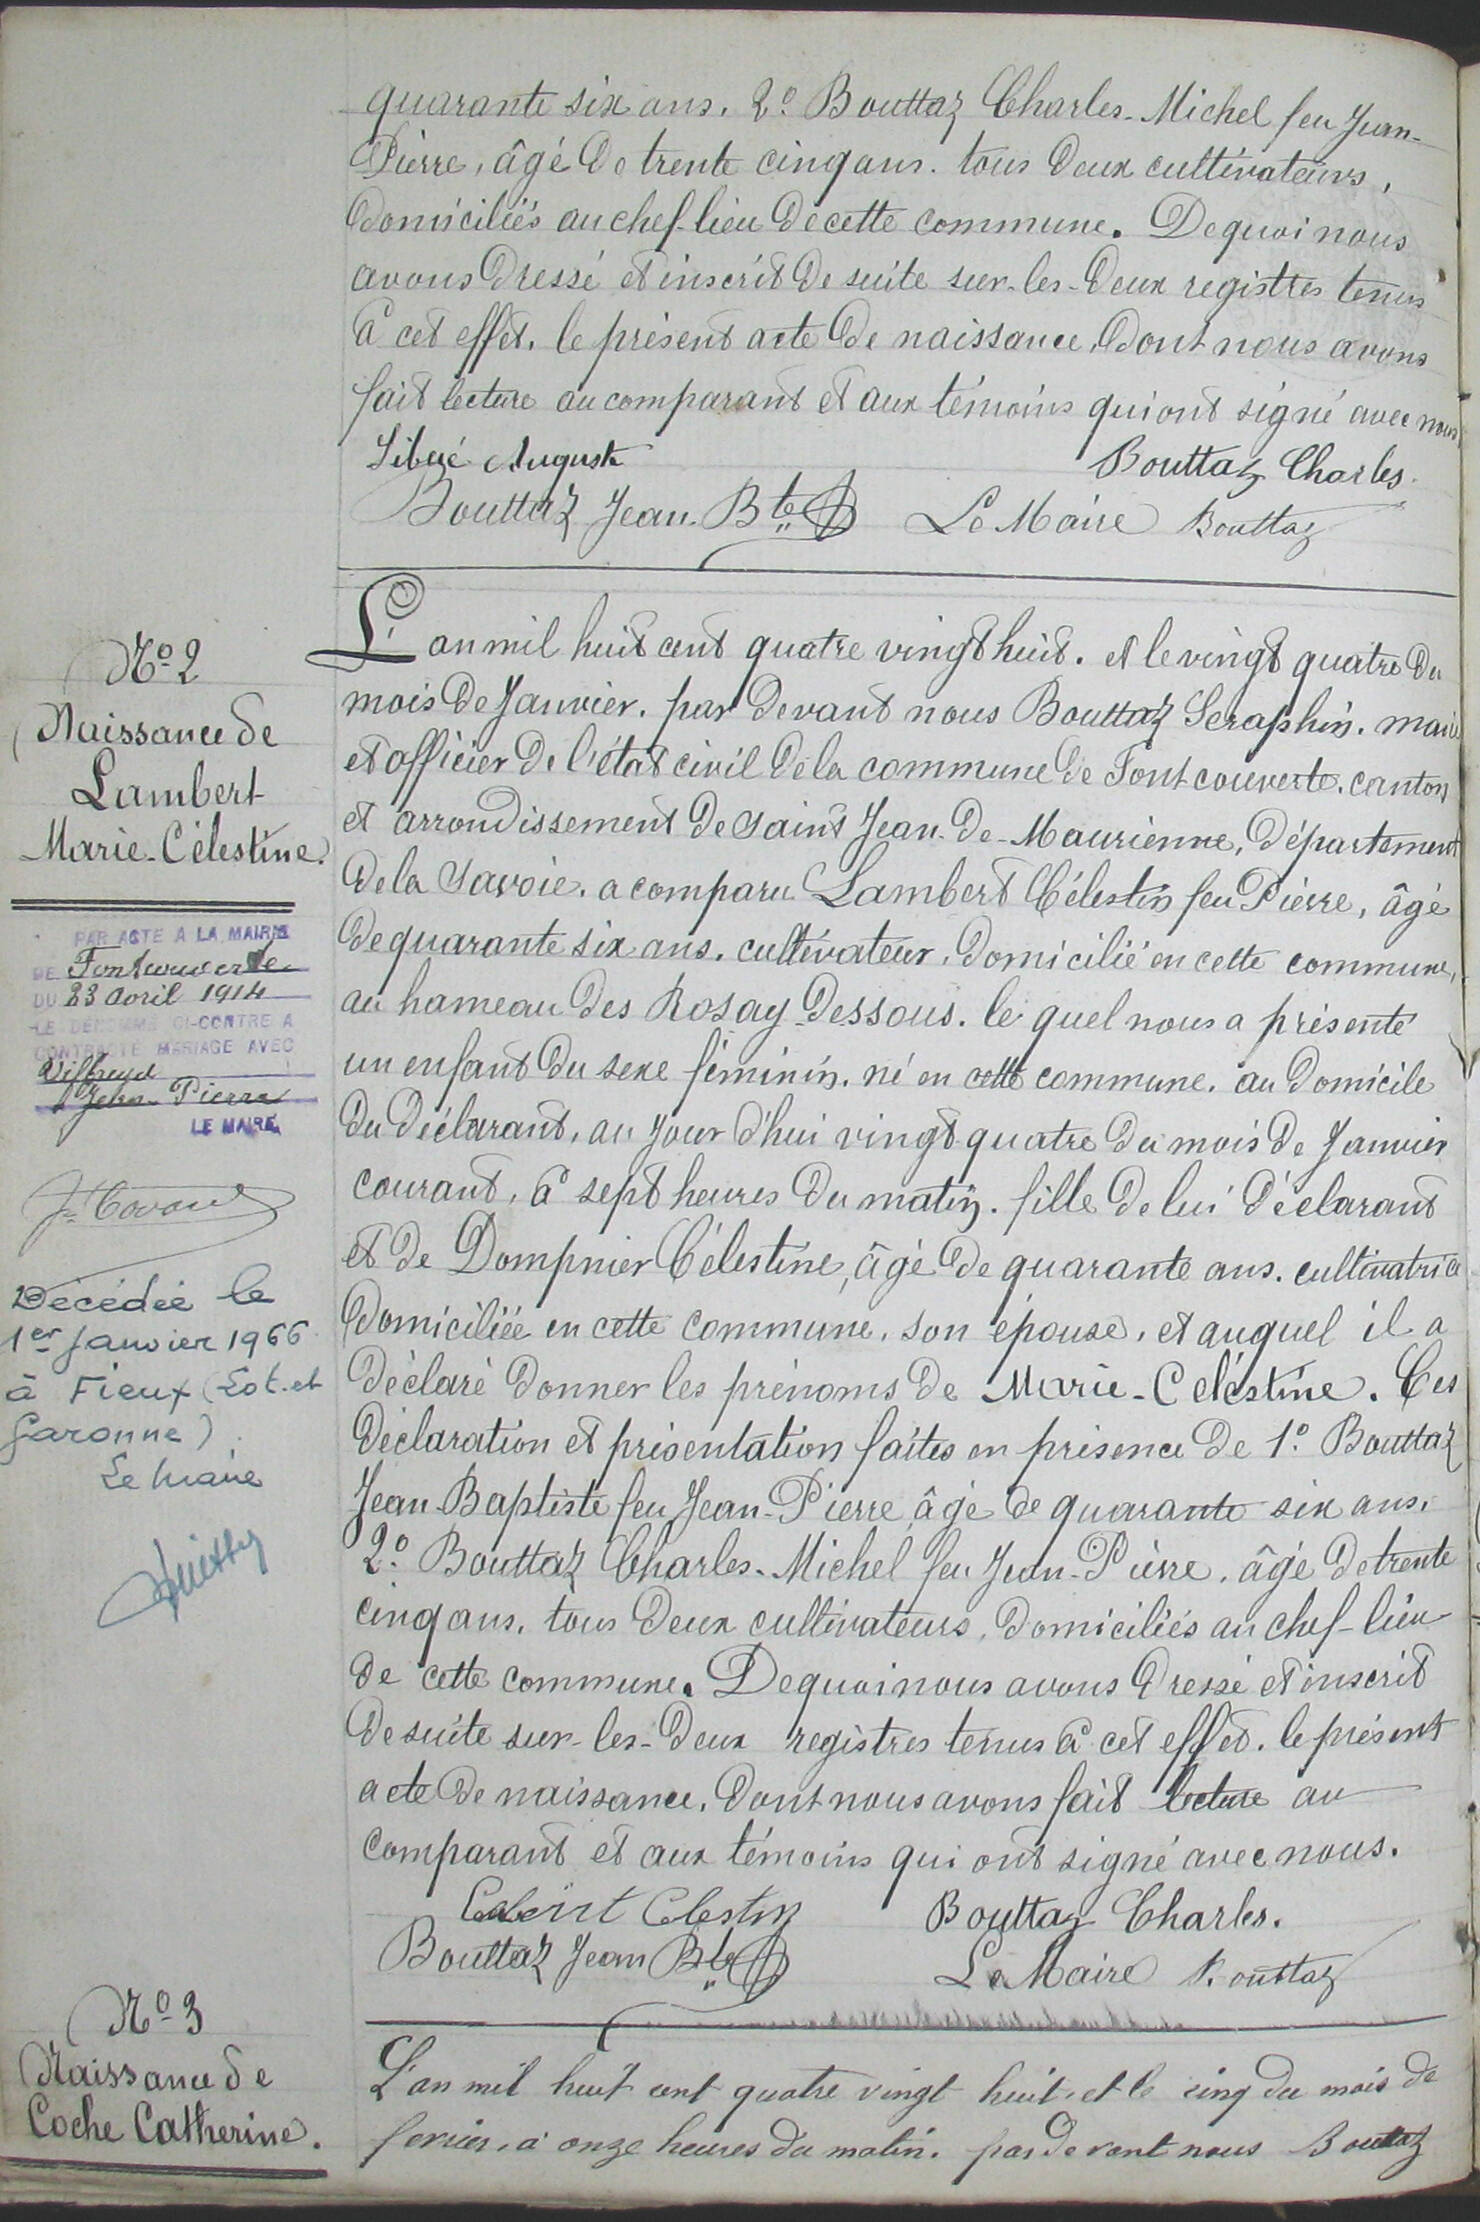 quarante six ans. 2º Bouttaz Charles-Michel feu Jean-
Pierre, âgé de trente cinq ans. tous deux cultivateurs,
domiciliés au chef-lieu de cette commune. De quoi nous
avons dressé et inscrit de suite sur-les-deux registres tenus
à cet effet. le présent acte de naissance, dont nous avons
fait lecture au comparant et aux témoins qui ont signé avec nous
Auguste
Bouttaz Charles.
Bouttaz Jean-Bte
Le Maire Bouttaz
Nº 2
Naissance de
Lambert
Marie-Célestine.
PAR ACTE A LA MAIRIE
DE Fontcouverte
DU 23 avril 1914
LE DÉNOMMÉ CI-CONTRE A
CONTRACTÉ MARIAGE AVEC
Viffreyd
Jean-Pierre
LE MAIRE
Décédée le
1er janvier 1966
à Fieux (Lot-et
Garonne)
Le maire
L'an mil huit cent quatre vingt huit. et le vingt quatre du
mois de Janvier. par devant nous Bouttaz Seraphin. maire
et officier de l'état civil de la commune de Fontcouverte. canton
et arrondissement de Saint Jean-de-Maurienne, département
de la Savoie. a comparu Lambert Célestin feu Pierre, âgé
de quarante six ans. cultivateur, domicilié en cette commune,
au hameau des Rosay-Dessous. le quel nous a présenté
un enfant du sexe féminin. né en cette commune. au domicile
du déclarant, au jour d'hui vingt-quatre du mois de Janvier
courant, à sept heures du matin. fille de lui déclarant
et de Dompnier Célestine, âgé de quarante ans. cultivatrice
domiciliée en cette commune, son épouse, et auquel il a
déclaré donner les prénoms de Marie-Céléstine. Ces
déclaration et présentation faites en présence de 1º Bouttaz
Jean-Baptiste feu Jean-Pierre, âgé de quarante six ans.
2º Bouttaz Charles-Michel feu Jean-Pierre, âgé de trente
cinq ans, tous deux cultivateurs, domiciliés au chef-lieu
de cette commune. De quoi nous avons dressé et inscrit
de suite sur-les-deux registres tenus à cet effet. le présent
acte de naissance, dont nous avons fait lecture au
comparant et aux témoins qui ont signé avec nous.
Celestin
Bouttaz Charles.
Bouttaz Jean Bte
Le Maire Bouttaz
Nº 3
Naissance de
Coche Catherine.
L'an mil huit cent quatre vingt huit, et le cinq du mois de
fevrier, à onze heures du matin. par devant nous Bouttaz